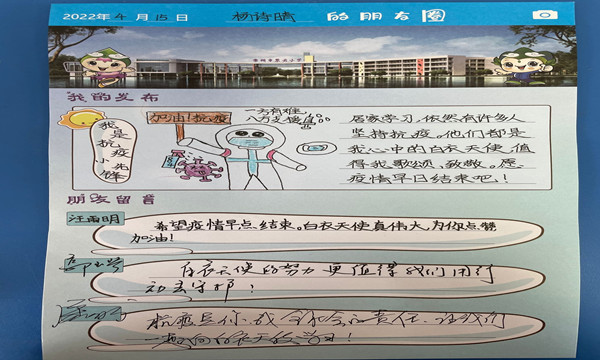 2022年4月15日 杨诗晴 的朋友圈
我的发布
加油!抗疫
一方有难,
八方支援
我是抗疫小先锋
居家学习,依然有许多人
坚持抗疫。他们都是
我心中的白衣天使,值
得我歌颂、致敬。愿
疫情早日结束吧!
朋友留言
汪雨明
希望疫情早点结束。白衣天使真伟大,为你点赞
加油!
白衣天使的努力更值得我们用行
动去守护!
抗疫是你我全社会的责任,让我们
一起向白衣天使学习!